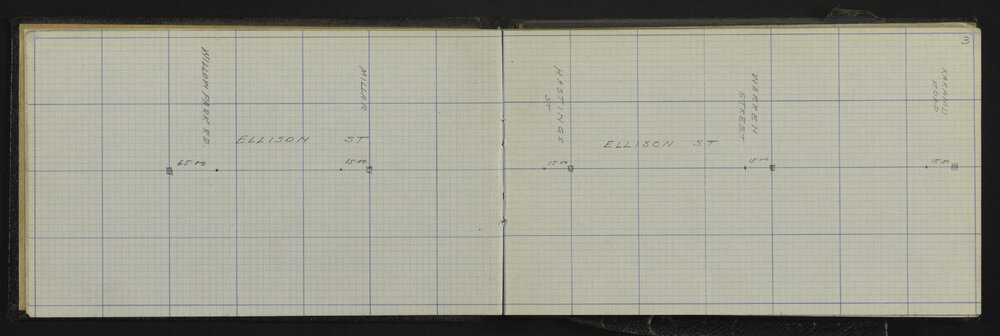 WILLOW PARK RD.
MILLAR
ELLISON ST
65.00
15.00
3
HASTINGS
ST
WARREN
STREET
KARAMU
ROAD
ELLISON ST
15.00
15.00
15.00